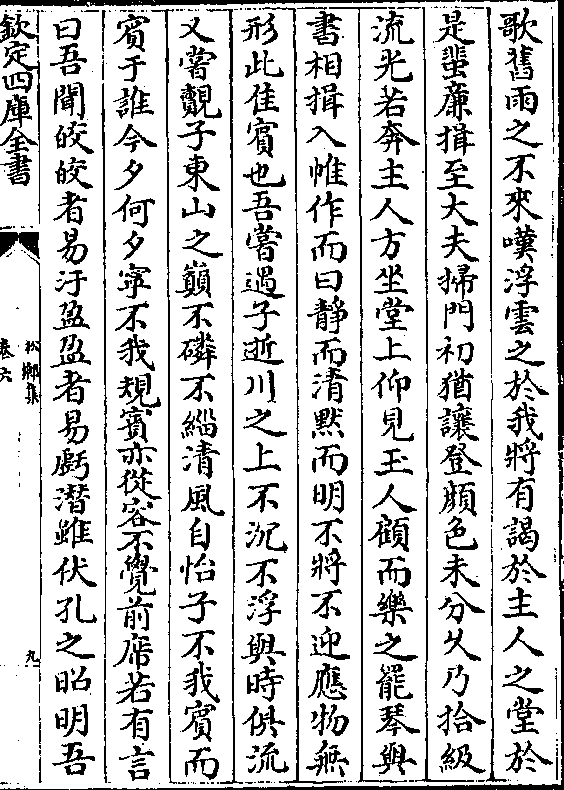 歌舊雨之不來嘆浮雲之於我將有謁於主人之堂於
是蜚廉揖至大夫掃門初猶讓登顔色未分乆乃拾級
流光若奔主人方坐堂上仰見玉人顧而樂之罷琴與
書相揖入帷作而曰靜而清黙而明不將不迎應物無
形此佳賓也吾嘗遇子逝川之上不沉不浮與時俱流
又嘗覿子東山之巔不磷不緇清風自怡子不我賓而
賓于誰今夕何夕寜不我規賓亦從容不覺前席若有言
曰吾聞皎皎者易汙盈盈者易虧潛雖伏孔之昭明吾
欽定四庫全書
松鄉集
卷六
九